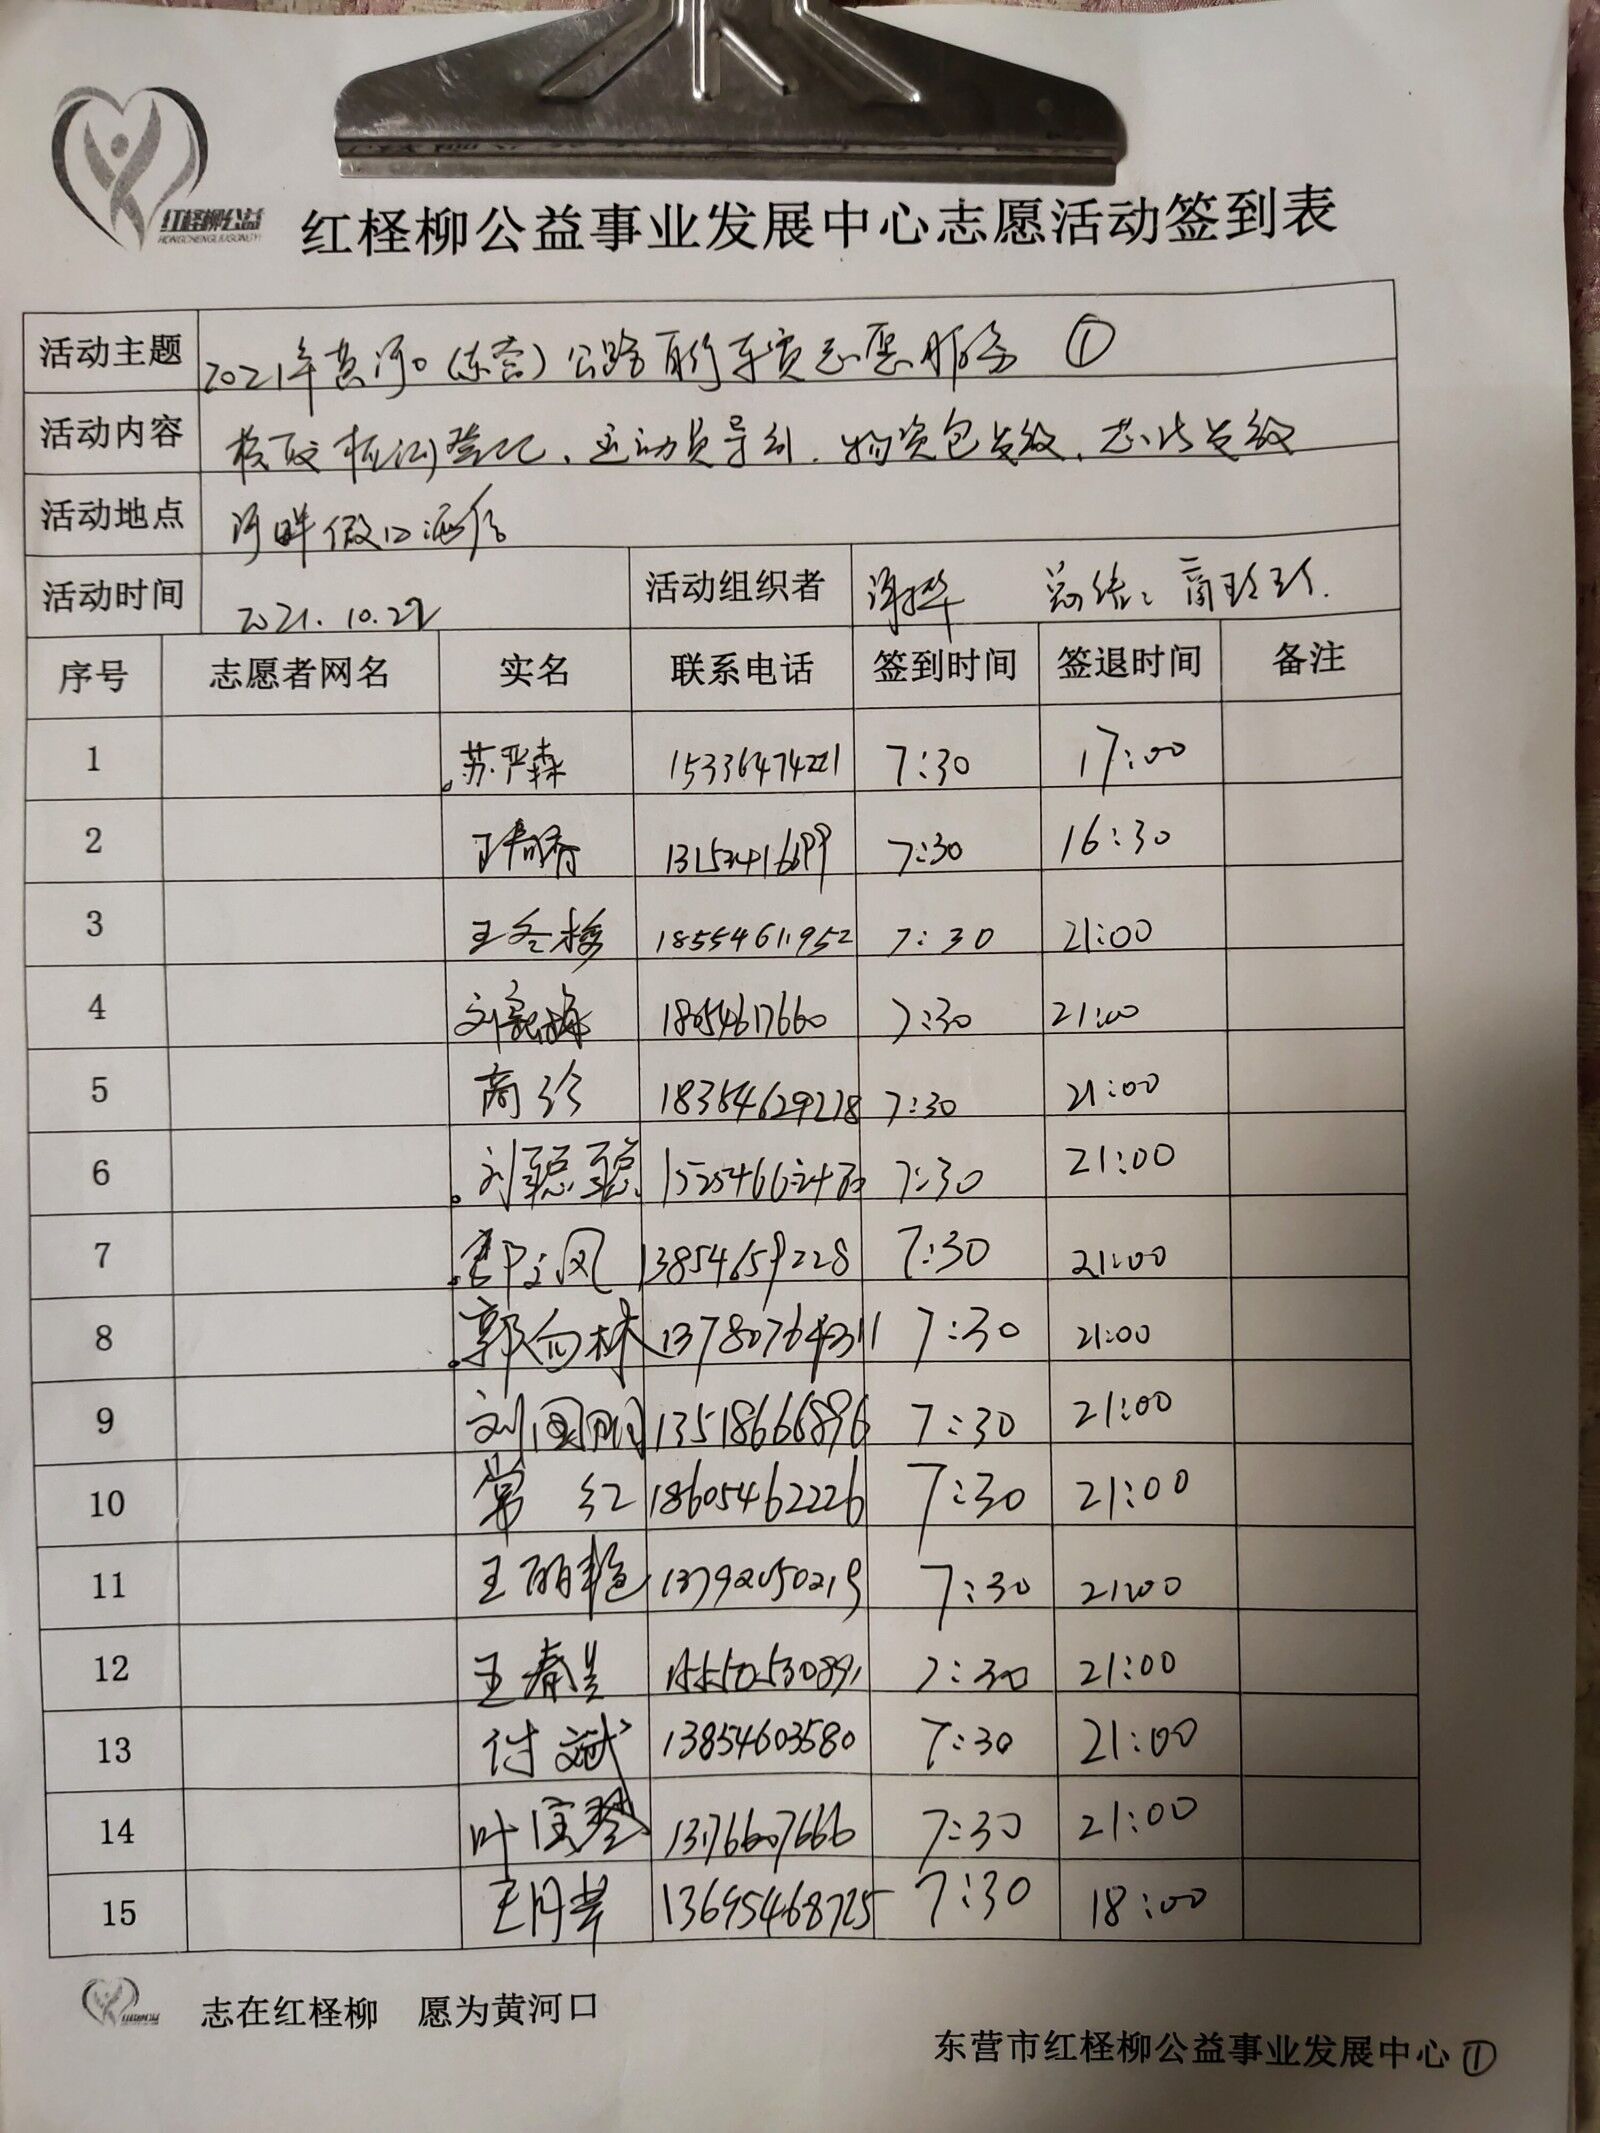 红柽柳公益
HONGCHENGLIUGONGYI
红柽柳公益事业发展中心志愿活动签到表
活动主题 2021年黄河口(东营)公路自行车赛志愿服务 ①
活动内容 核酸检测登记、运动员导引、物资包发放、发放
活动地点 河畔假日酒店
活动时间 2021.10.22 活动组织者 总结: 商珍珍.
序号 志愿者网名 实名 联系电话 签到时间 签退时间 备注
1 苏严森 15336474221 7:30 17:00
2 7:30 16:30
3 王冬梅 18554611952 7:30 21:00
4 刘 18054617660 7:30 21:00
5 商珍 18354629278 7:30 21:00
6 刘聪聪 7:30 21:00
7 13854659228 7:30 21:00
8 郭向林 13780764311 7:30 21:00
9 刘国明 13518666896 7:30 21:00
10 常红 18605462226 7:30 21:00
11 王丽艳 13792050219 7:30 21:00
12 王春兰 7:30 21:00
13 付斌 13854603580 7:30 21:00
14 叶宝琴 13176607666 7:30 21:00
15 王月 13695468725 7:30 18:00
志在红柽柳 愿为黄河口
东营市红柽柳公益事业发展中心 ①